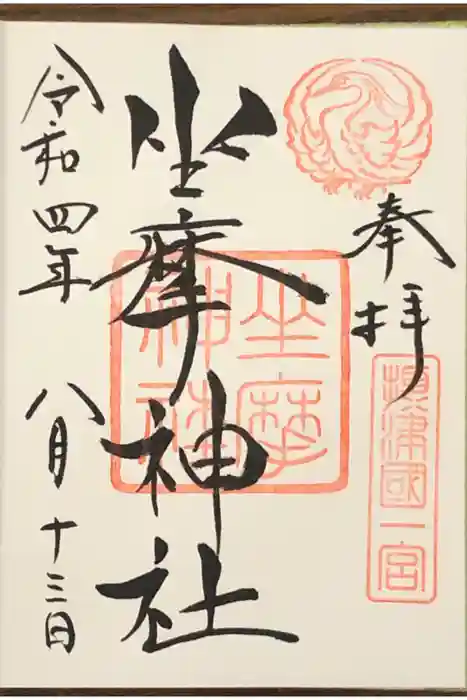 奉拝
攝津國一宮
坐摩神社
坐摩
神社
令和四年 八月十三日